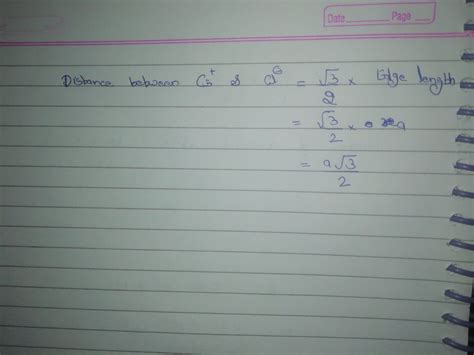 Date Page
Distance between Cs⁺ & Cl⊖ = √3/2 × Edge length
= √3/2 × a
= a√3/2